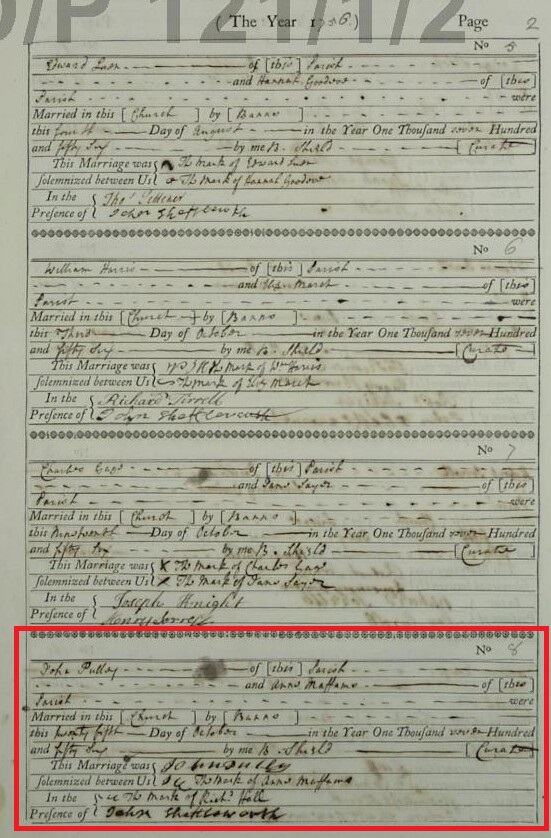 D/P 121/1/2
( The Year 1756. ) Page 2
No 5
Edward Luen of [this] Parish
and Hannah Goodove of [this]
Parish were
Married in this [Church] by [Banns]
this fourth Day of August in the Year One Thousand seven Hundred
and fifty Six by me B. Sheild [Curate]
This Marriage was The Mark of Edward Luen
solemnized between Us The Mark of Hannah Goodove
In the Thos
Presence of John Shettleworth
No 6
William Harris of [this] Parish
and March of [this]
Parish were
Married in this [Church] by [Banns]
this Third Day of October in the Year One Thousand seven Hundred
and fifty Six by me B. Sheild [Curate]
This Marriage was The Mark of Wm Harris
solemnized between Us The Mark of March
In the Richard Tirrell
Presence of John Shettleworth
No 7
Charles of [this] Parish
and Jane Sayer of [this]
Parish were
Married in this [Church] by [Banns]
this Day of October in the Year One Thousand seven Hundred
and fifty Six by me B. Sheild [Curate]
This Marriage was X The Mark of Charles
solemnized between Us X The Mark of Jane Sayer
In the Joseph Knight
Presence of Henry
No 8
John Pulley of [this] Parish
and Anne Maffams of [this]
Parish were
Married in this [Church] by [Banns]
this twenty fifth Day of October in the Year One Thousand seven Hundred
and fifty Six by me B. Sheild [Curate]
This Marriage was John Pulley
solemnized between Us The Mark of Anne Maffams
In the The Mark of Richd Hall
Presence of John Shettleworth